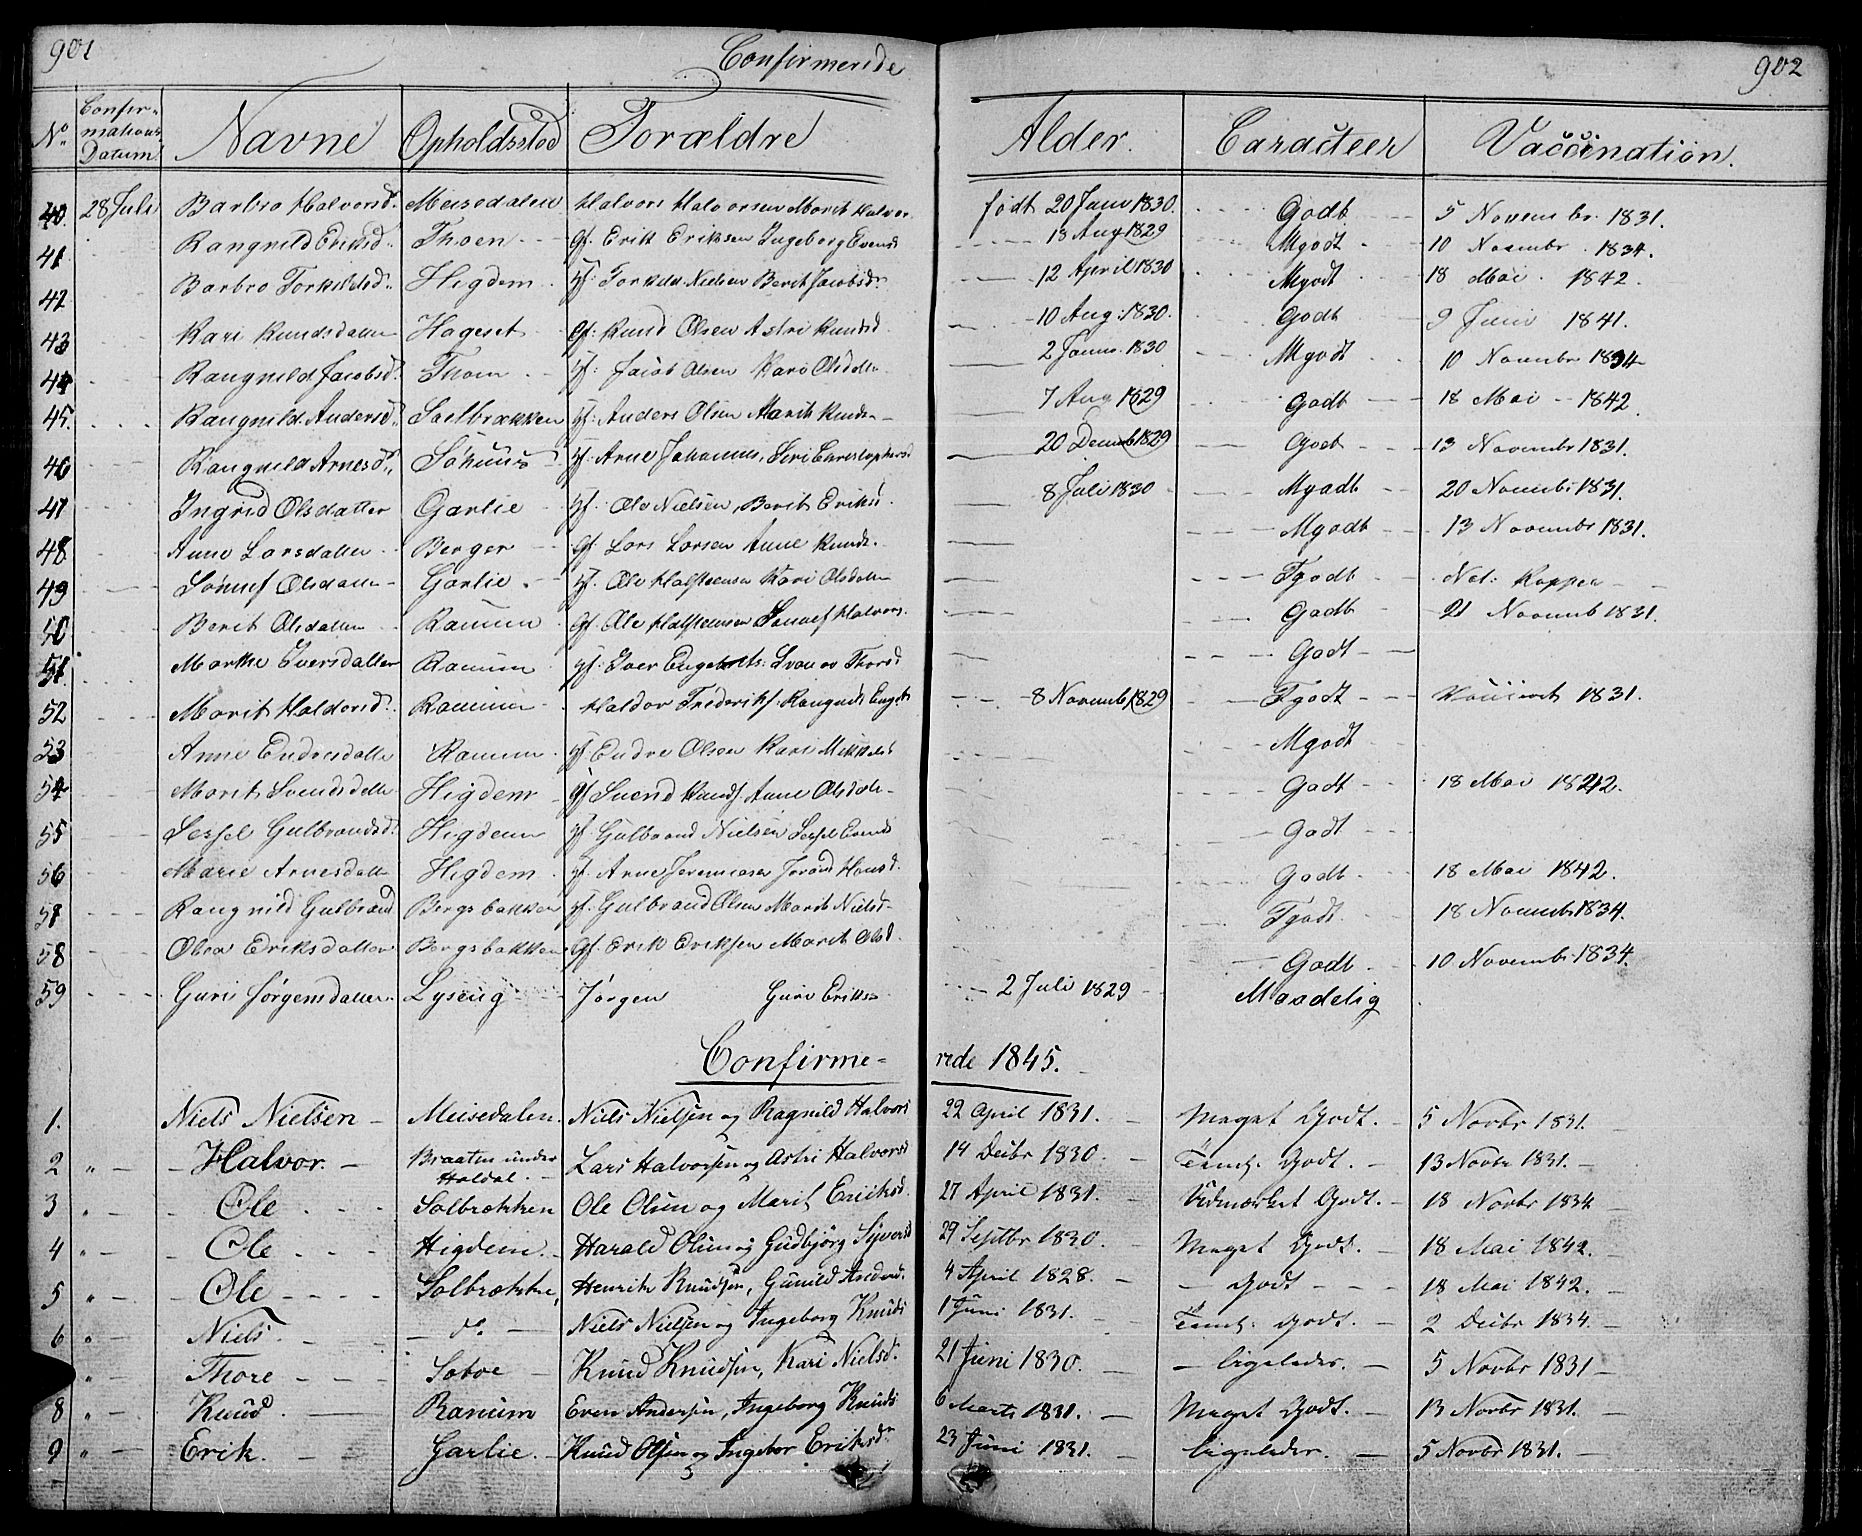 901 Confirmerede 902
No. Confirmations Datum Navne Opholdssted Forældre Alder. Caracteer Vaccination.
40. 28 Juli Barbro Halvorsd. Meisedalen Halvor Halvorsen Marit Halvor født 20 Juni 1830. Godt 5 Novembr. 1831.
41 Rangnild Eriksd. Thoen gf. Erik Eriksen Ingeborg Evensd 13 Aug 1829 Mgodt 10 Novembr. 1834.
42 Barbro Torkildsd. Higdem gf. Torkild Nielsen Berit Jacobsd. 12 April 1830 Mgodt 18 Mai 1842.
43 Kari Knudsdatter Hageset gf. Knud Olsen Astri Knudsd 10 Aug: 1830. Godt 9 Juni 1841.
44 Rangnild Jacobsd. Thoen gf. Jacob Olsen Kari Olsdatter 2 Janu. 1830 Mgodt 10 Novembr 1834
45. Rangnild Andersd. Sælbrækken gf. Anders Olsen Marit Knuds 7 Aug 1829 Godt 18 Mai 1842
46 Rangnild Arnesd. gf. Arne Johannes. Siri Christophersd 20 Decemb 1829 Godt 13 Novembr 1831.
47 Ingrid Olsdatter Garlie gf. Ole Nielsen, Berit Eriksd. 8 Juli 1830 Mgodt 20 Novembr 1831.
48 Anne Larsdatter Berger gf. Lars Larsen Anne Knuds. Mgodt 13 Novembr 1831.
49 Sønnef Olsdatter Garlie gf. Ole Halsteensen Kari Olsdatter Tgodt Nat: Kopper
50 Berit Olsdatter Ranum gf. Ole Halsteensen Sønnef Halvors. Godt 21 Novemb 1831.
51. Marthe Iversdatter Ranum gf. Iver Engebrets: Thorsd Godt
52 Marit Haldorsd. Ranum Haldor Frederiks. Rangnild Engeb 8 Novemb 1829 Tgodt 1831.
53 Anne Endresdatter Ranum gf. Endre Olsen Kari Mikkelsd Mgodt
54 Marit Svendsdatter Higdem gf Svend Knuds. Anne Olsdatter Godt 18 Mai 1842.
55 Sessel Gulbrandsd. Higdem gf Gulbrand Nielsen Sessel Evensd Godt
56 Marie Arnesdatter Higdem gf. Arne Jeremiasen Jorand Hansd. Godt 18 Mai 1842.
57 Rangnild Gulbrand Bergsbakken gf. Gulbrand Olsen Marit Nielsd Tgodt 18 Novemb 1834.
58 Olea Eriksdatter Bergsbakken gf. Erik Eriksen Marit Olsd. Godt 10 Novemb 1834.
59 Guri Jørgensdatter Lyseng Jørgen Guri Eriks 2 Juli 1829 Maadelig
Confirmerede 1845.
1. Niels Nielsen Meisedalen. Niels Nielsen og Ragnild Halvors 22 April 1831. Meget Godt. 5 Novbr 1831.
2 " Halvor. Braaten under Haldal. Lars Halvorsen og Astri Halvorsd 14 Decbr 1830. Teml. Godt. 13 Novbr 1831.
3 " Ole Solbrækken Ole Olsen og Marit Eriksd. 27 April 1831. Udmærket Godt. 18 Novbr 1834
4 " Ole Higdem. Harald Olsen og Gudbjørg Syversd 29 Septbr 1830. Meget Godt. 18 Mai 1842.
5 " Ole Solbrække, Henrik Knudsen, Gunild Andersd. 4 April 1828. Godt 18 Mai 1842.
6 " Niels. do. Niels Nielsen og Ingeborg Knuds 1 Juni 1831. Teml. Godt. 2 Decbr 1834.
" Thore Saboe Knud Knudsen, Kari Nielsd. 21 Juni 1830. ligeledes. 5 Novbr 1831
8 " Knud. Ranum Even Andersen, Ingeborg Knuds 6 Marts 1831. Meget Godt. 13 Novbr 1831.
9 " Erik. Garlie. Knud Olsen og Ingebor Eriksdr 23 Juni 1831. ligeledes. 5 Novbr 1831.